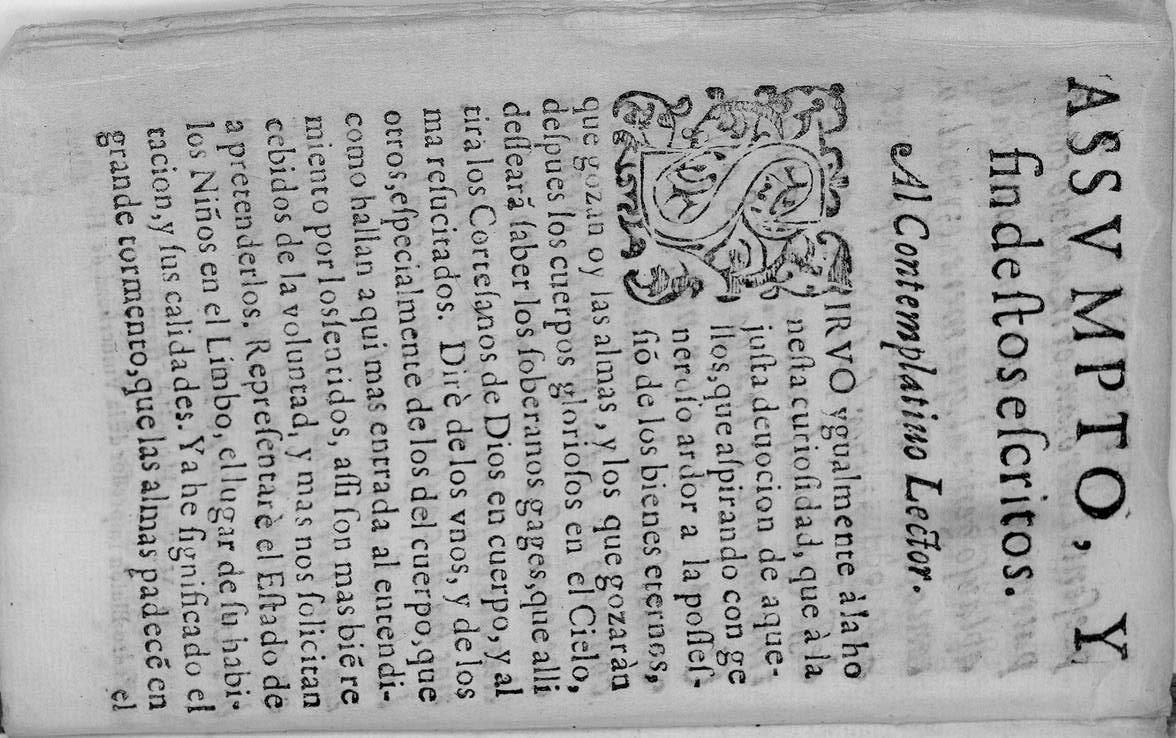 ASSVMPTO, Y
fin deſtos eſcritos.
Al Contemplatiuo Lector.
SIRVO ygualmente à la ho
neſta curioſidad, que à la
juſta deuocion de aque-
llos, que aſpirando con ge
neroſo ardor a la poſſeſ-
ſiõ de los bienes eternos,
que gozan oy las almas, y los que gozaràn
deſpues los cuerpos glorioſos en el Cielo,
deſſearã ſaber los ſoberanos gages, que alli
tirã los Corteſanos de Dios en cuerpo, y al
ma reſucitados. Dirè de los vnos, y de los
otros, eſpecialmente de los del cuerpo, que
como hallan aqui mas entrada al entendi-
miento por los ſentidos, aſſi ſon mas biẽ re
cebidos de la voluntad, y mas nos ſolicitan
a pretenderlos. Repreſentarè el Eſtado de
los Niños en el Limbo, el lugar de ſu habi-
tacion, y ſus calidades. Ya he ſignificado el
grande tormento, que las almas padecẽ en
el